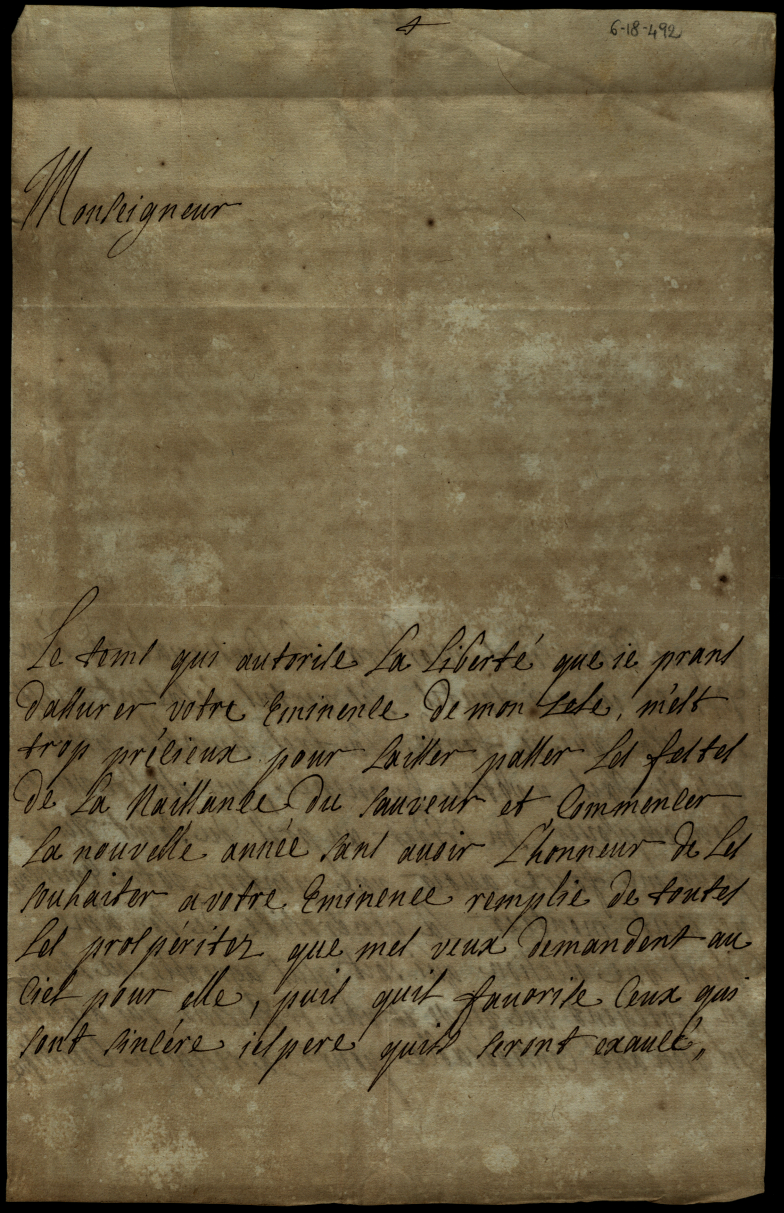 6-18-492
Monseigneur
Le tems qui autorise La Liberté que ie prans
dassurer votre Eminence de mon zele, m'est
trop précieux pour Laisser passer Les festes
de La Naissance du sauveur et Commencer
La nouvelle année sans avoir L'honneur de Les
souhaiter a votre Eminence remplie de toutes
Les prospéritez que mes veux demandent au
Ciel pour elle, puis quil favorise Ceux qui
sont sincére iespere quils seront exaucé,,